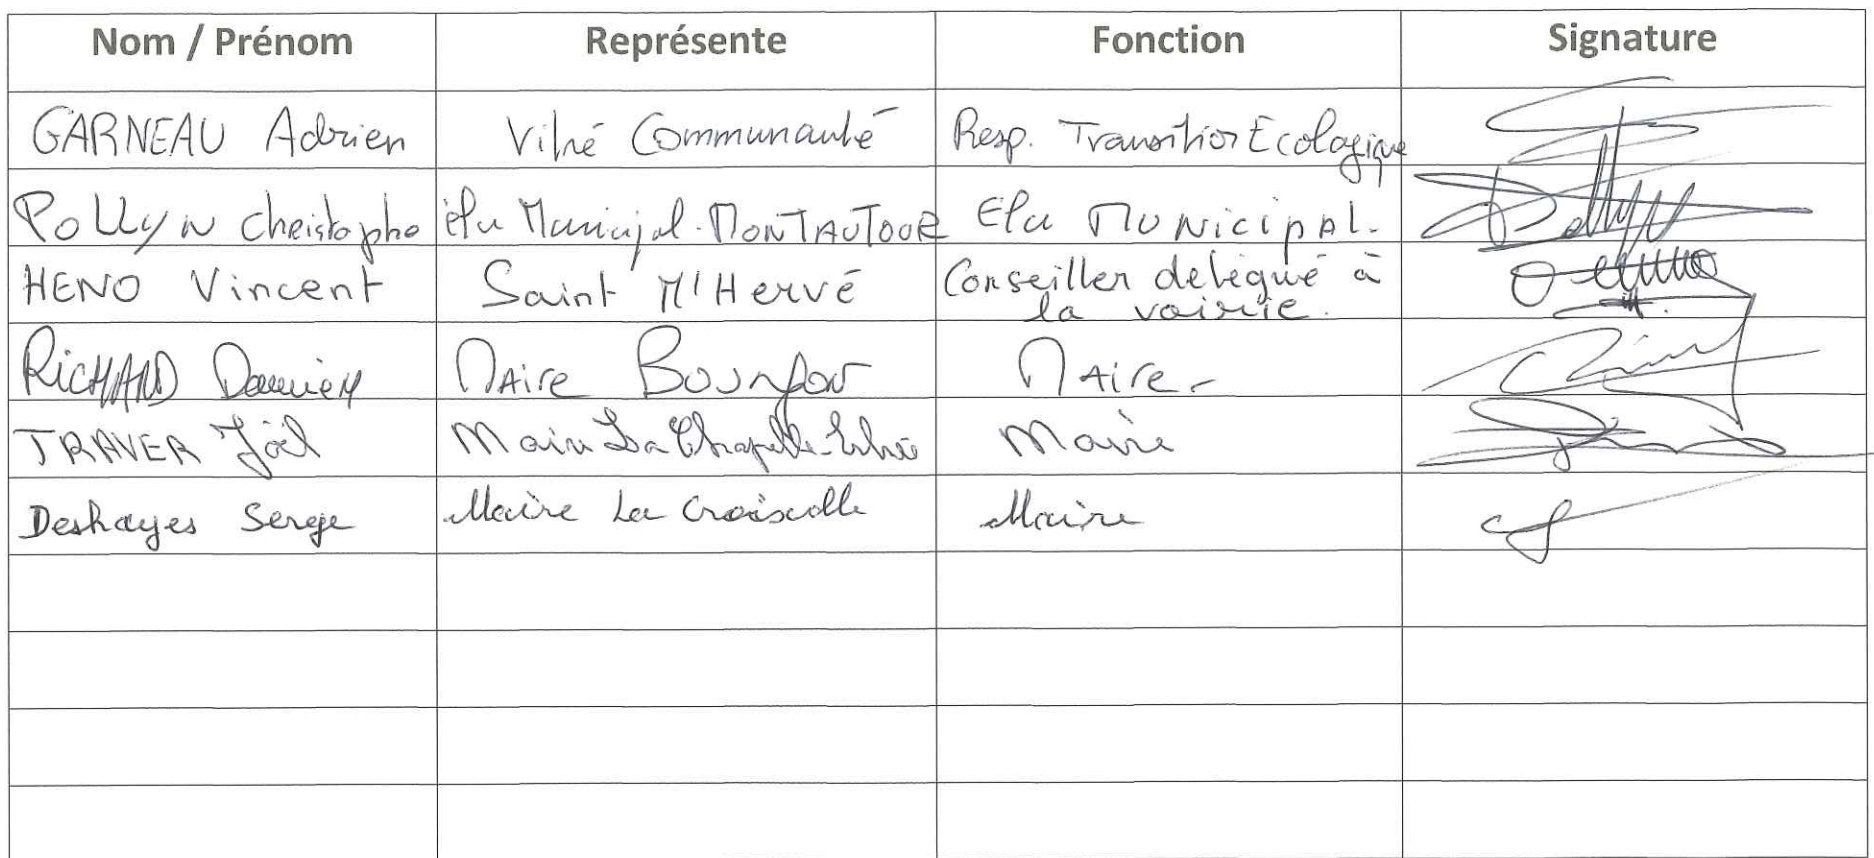 Nom / Prénom Représente Fonction Signature
GARNEAU Adrien Vitré Communauté Resp. Transition Ecologique
POLLYN Christophe élu Municipal - MONTAUTOUR Elu MUNICIPAL.
HENO Vincent Saint M'Hervé Conseiller delegué à
la voirie.
RICHARD Damien MAire MAire
TRAVER Joël Maire La Chapelle-Erbrée Maire
Deshayes Serge Maire La Croixille Maire